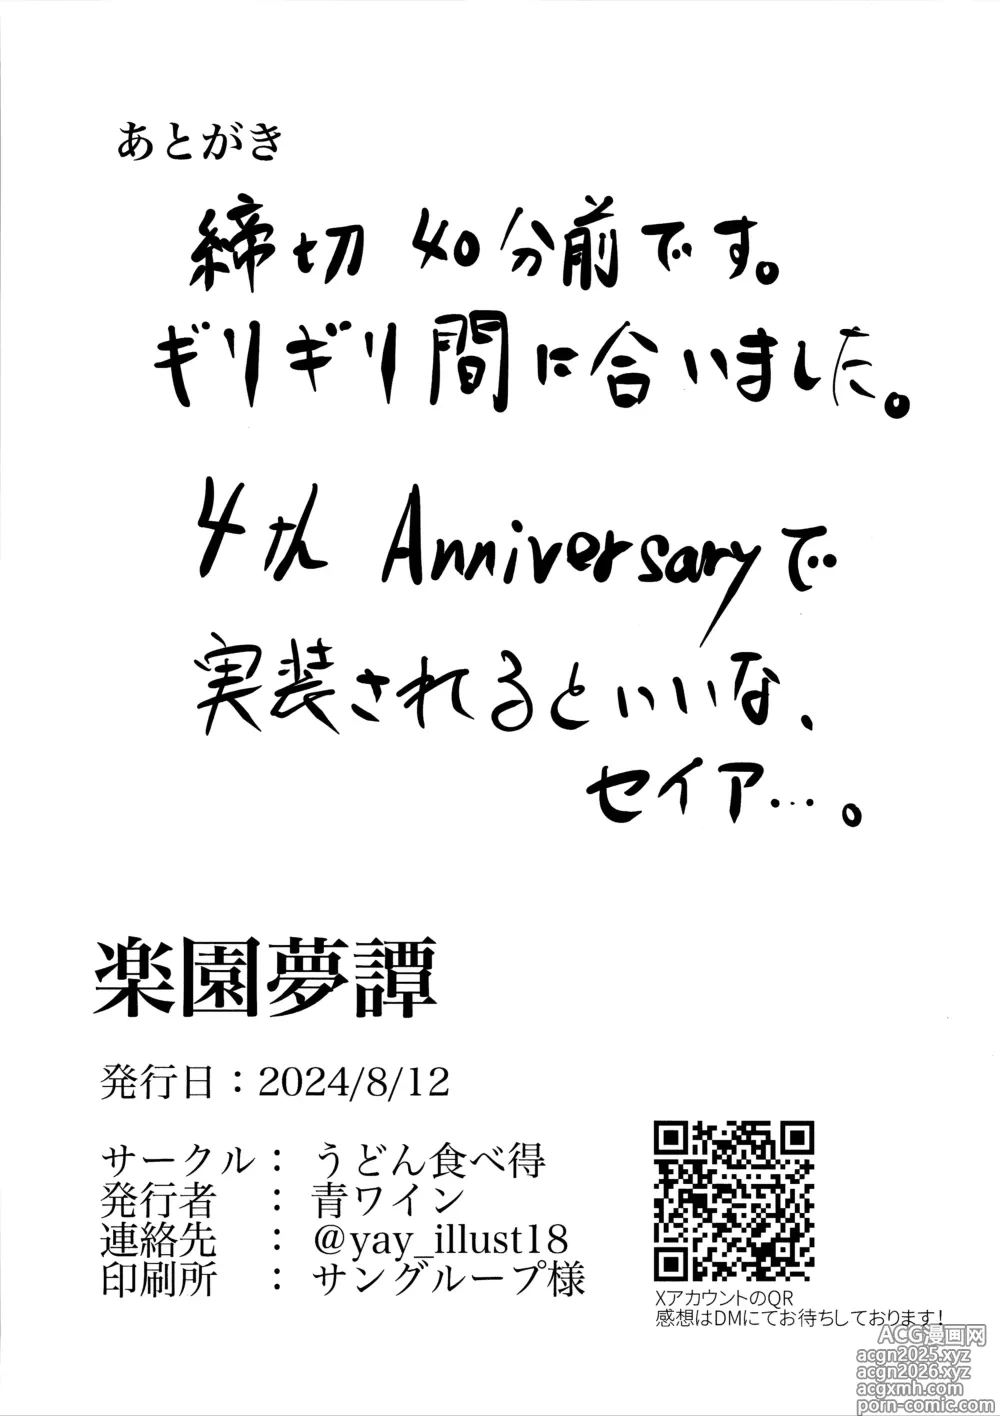 あとがき
締切 40分前です。
ギリギリ間に合いました。
4th Anniversaryで
実装されるといいな、
セイア…。
楽園夢譚
発行日：2024/8/12
サークル： うどん食べ得
発行者 ： 青ワイン
連絡先 ： @yay_illust18
印刷所 ： サングループ様
XアカウントのQR
感想はDMにてお待ちしております!
ACG漫画网
acgn2025.xyz
acgn2026.xyz
acgxmh.com
porn-comic.com